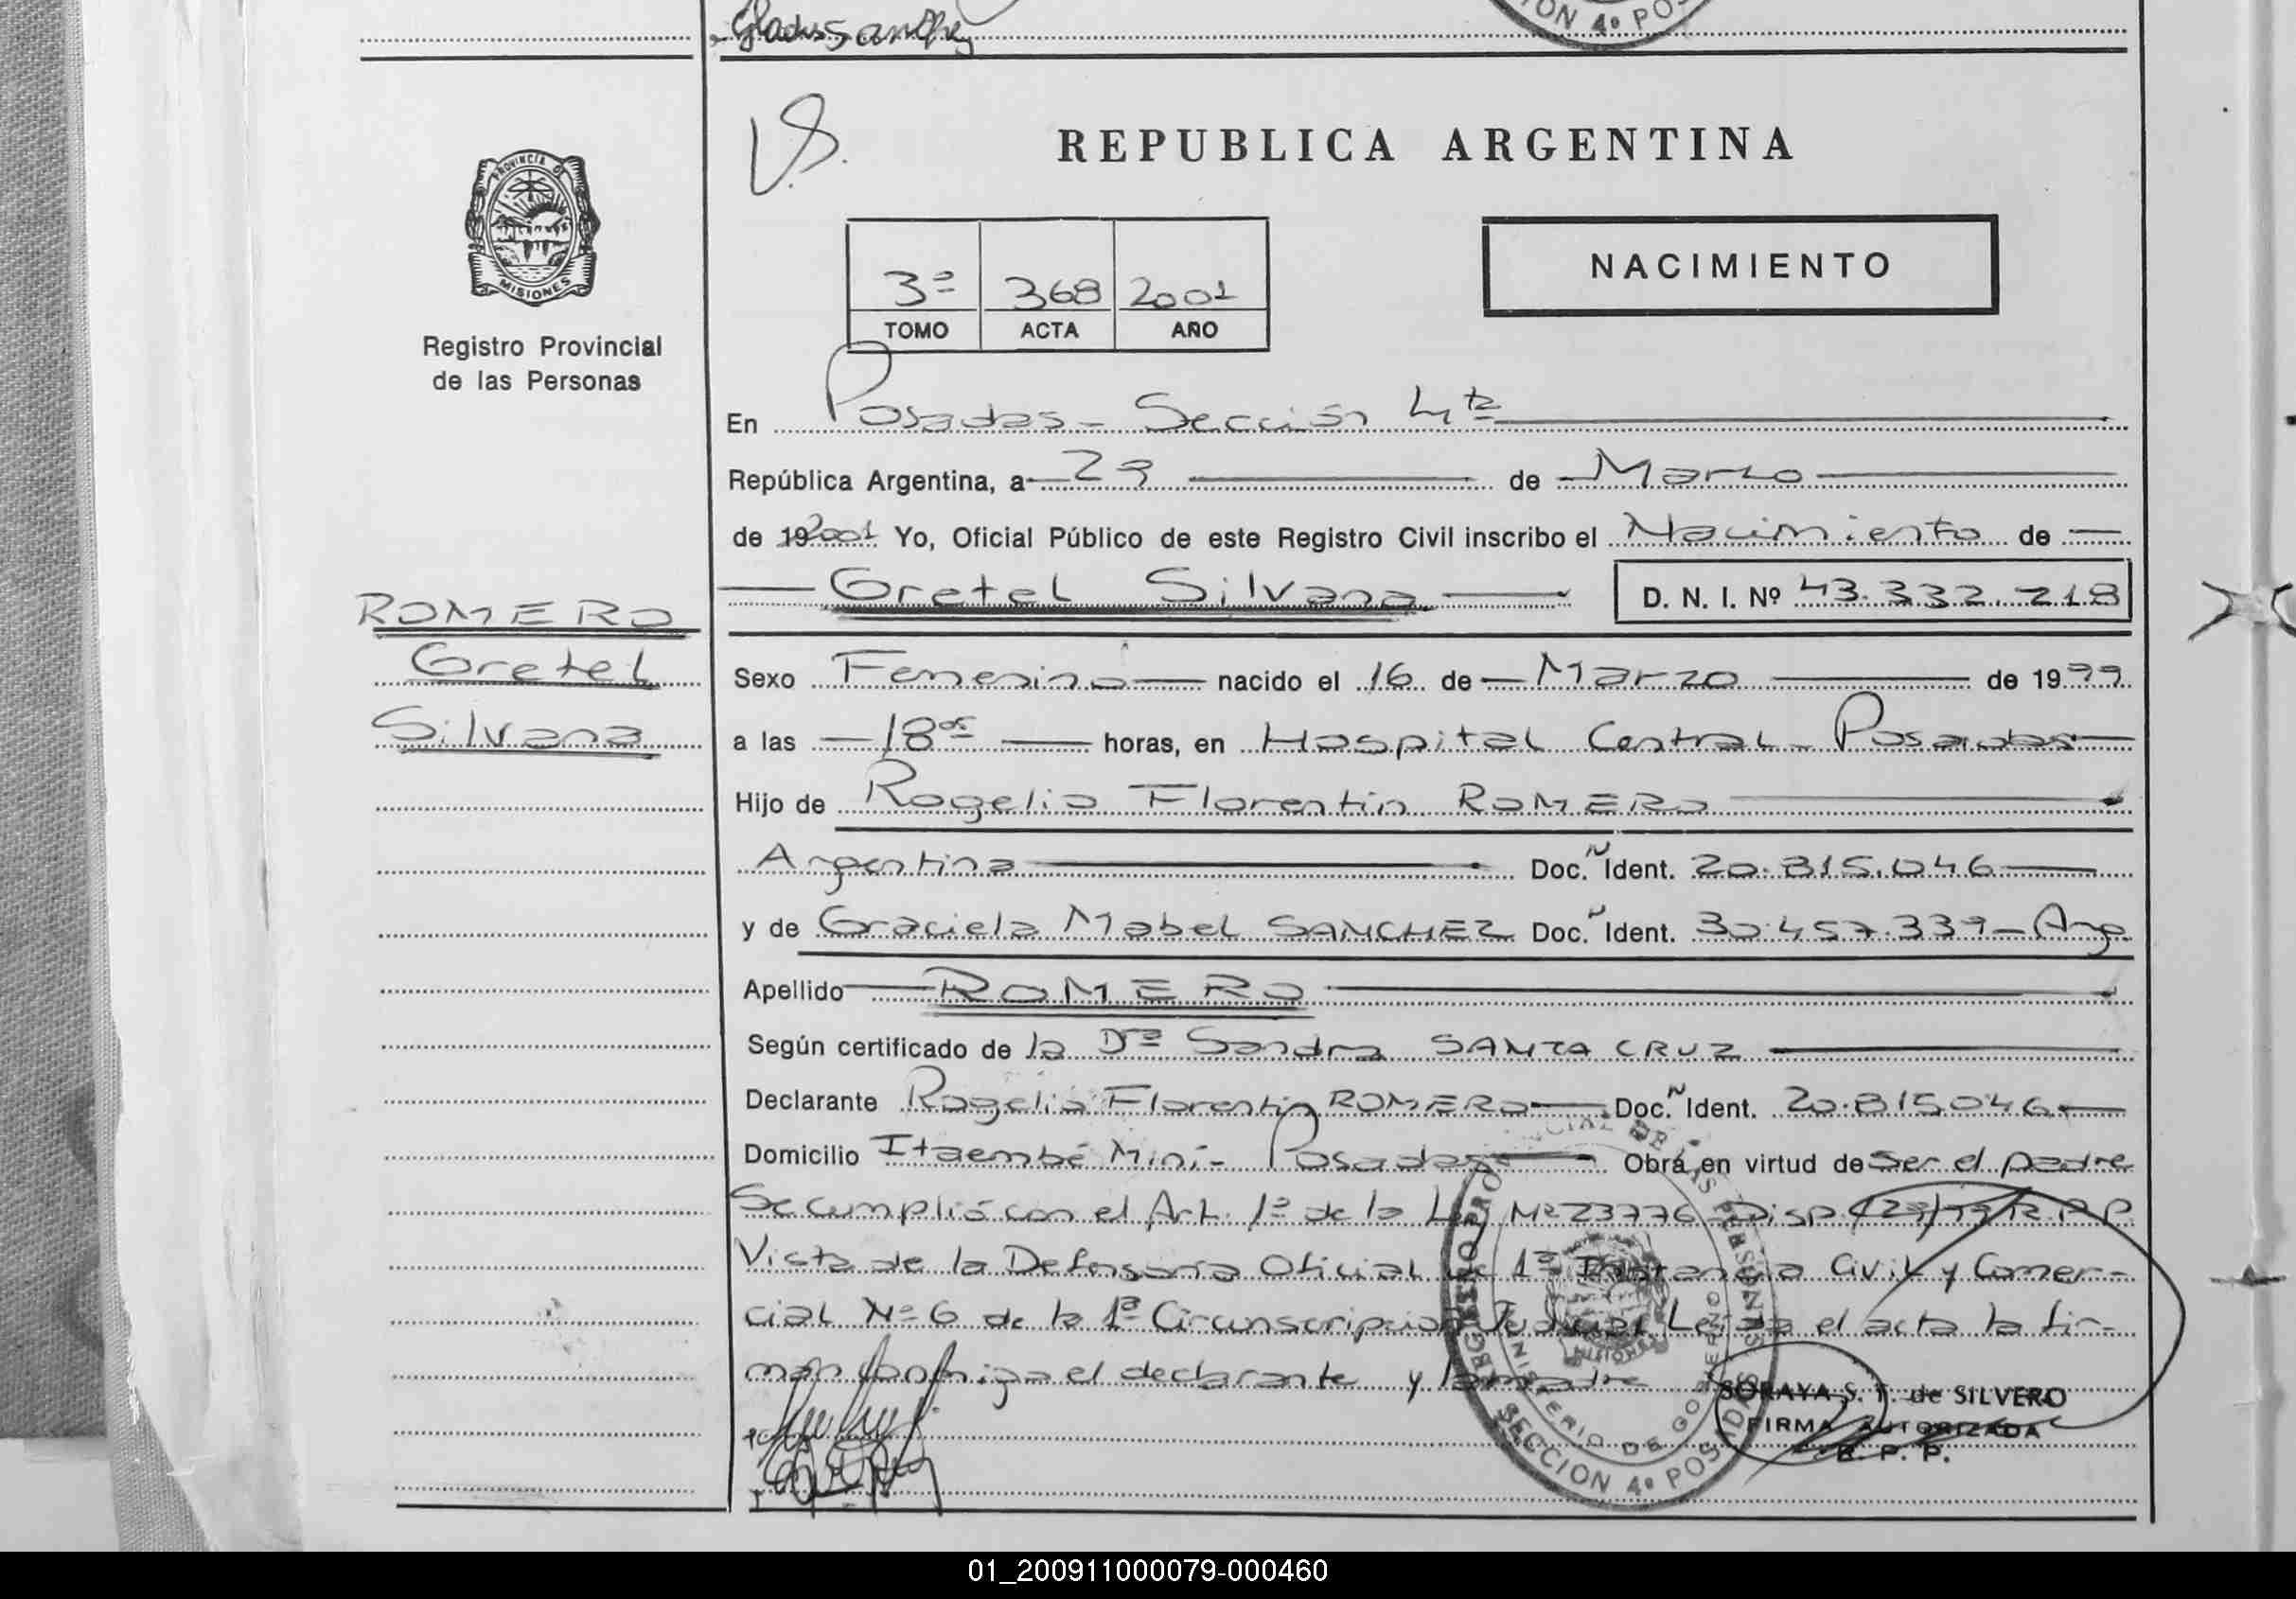 Gladys Sanchez
CION 4º POS
PROVINCIA DE
MISIONES
Registro Provincial
de las Personas
REPUBLICA ARGENTINA
NACIMIENTO
3º 368 2001
TOMO ACTA AÑO
En Posadas - Sección 4ta
República Argentina, a 23 de Marzo
de 19 2001 Yo, Oficial Público de este Registro Civil inscribo el Nacimiento de
Gretel Silvana D. N. I. Nº 43.332.218
ROMERO
Gretel
Silvana
Sexo Femenino nacido el 16 de Marzo de 1999
a las 18 hs horas, en Hospital Central - Posadas
Hijo de Rogelio Florentin ROMERO
Argentina Doc. N Ident. 20.815.046
y de Graciela Mabel SANCHEZ Doc. N Ident. 30.457.339 - Arg.
Apellido ROMERO
Según certificado de la Dra Sandra SANTA CRUZ
Declarante Rogelio Florentin ROMERO Doc. N Ident. 20.815.046
Domicilio Itaembé Mini - Posadas Obra en virtud de ser el padre
Se cumplió con el Art. 1º de la Ley Nº 23776 Disp. R.P.P.
Vista de la Defensoría Oficial de 1ª Instancia Civil y Comer-
cial Nº 6 de la 1ª Circunscripcion Judicial Leida el acta la fir-
man conmigo el declarante y la madre
REGISTRO PROVINCIAL DE LAS PERSONAS
MINISTERIO DE GOBIERNO
SECCION 4º POSADAS
SORAYA S. T. de SILVERO
FIRMA AUTORIZADA
R. P. P.
01_200911000079-000460